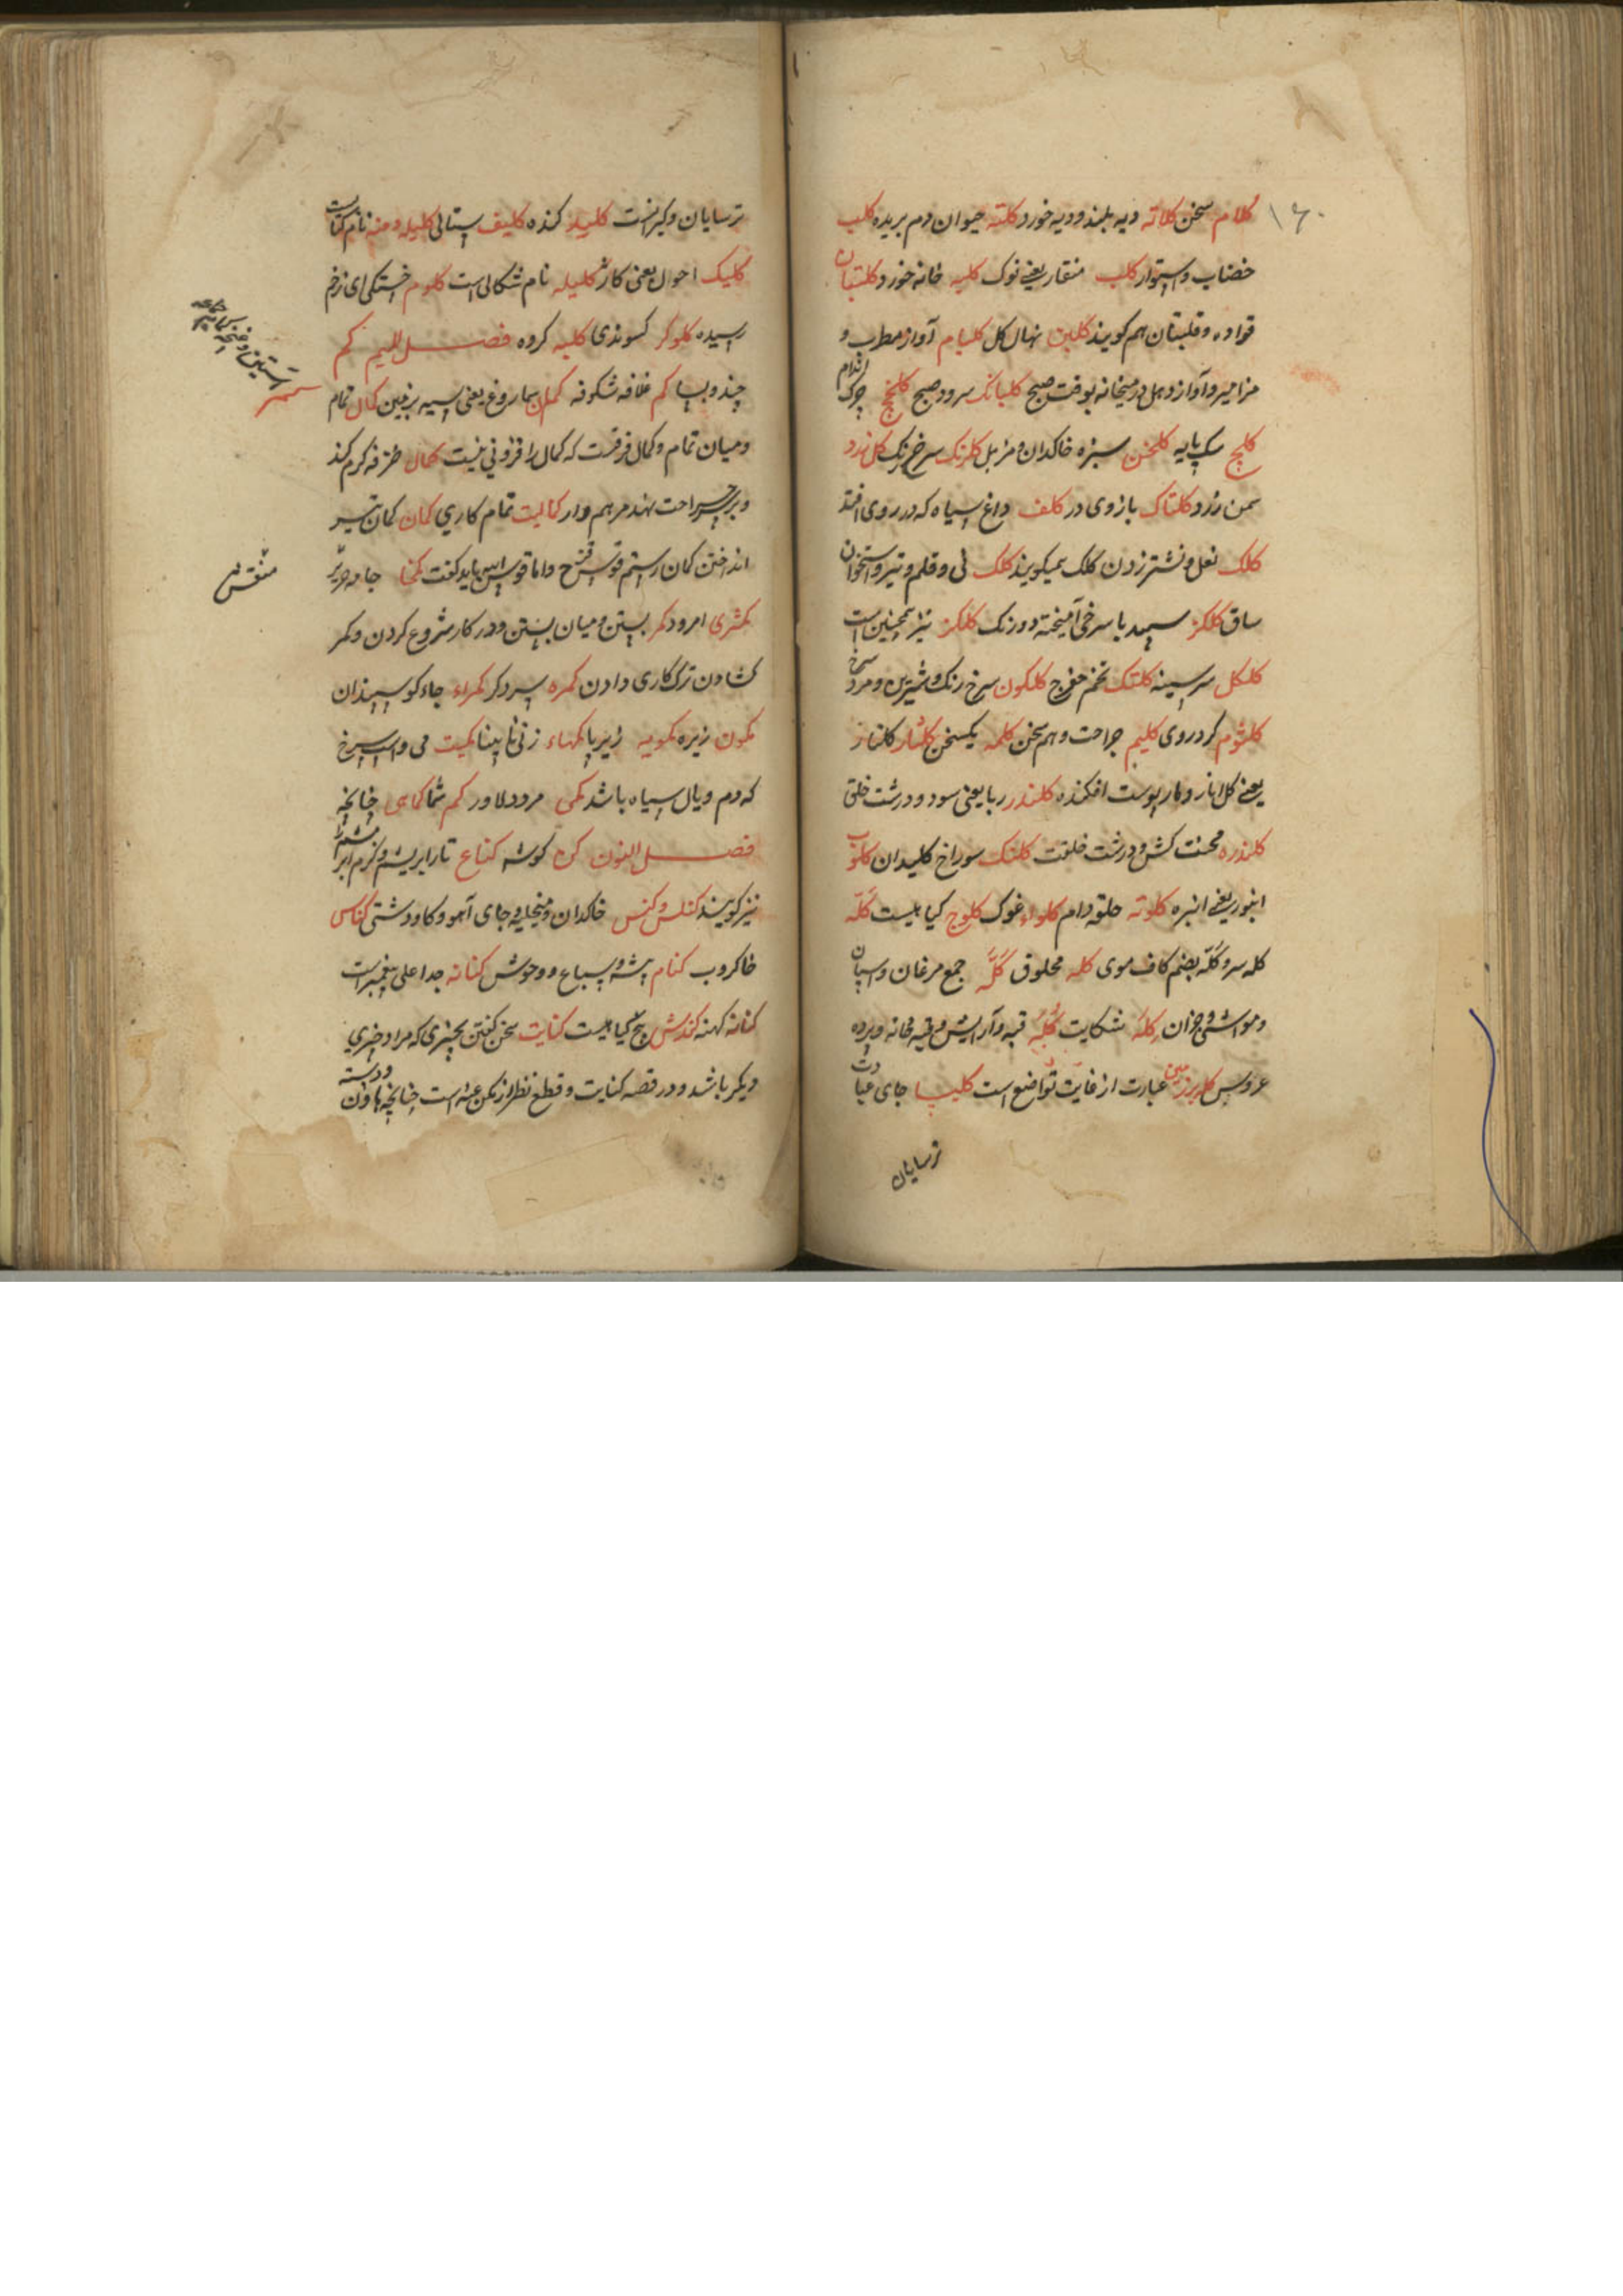 ۱۶۰
کلام سخن کلاته دیه بلند و دیه خورد کلته حیوان دم بریده کلب
خضاب و استوار کلب منقار یعنی نوک کلبه خانه خورد کلتبان
قواده و قلبتان هم کویند کلبن نهال کل کلبام آواز مطرب و
مزامیر و آواز دهل در میخانه بوقت صبح کلبانک سرود صبح کلخج چرک اندام
کلج سک پایه کلخن سبزه خاکدان و مزبل کلرنک سرخ رنک کل زرد
سمن زرد کلتاک بازوی در کلف داغ سیاه که در روی افتد
کلک نعل و نشتر زدن کلک نمیکویند کلک نی و قلم و تیر و استخوان
ساق کلکز سپید با سرخی آمیخته دو رنک کلکز نیز همچنین است
کلکل سر سینه کلتک تخم مفرج کلکون سرخ رنک و شیرین و مرد سرخ
کلثوم کرد روی کلیم جراحت و هم سخن کلمه یکسخن کلنار کلنار
یعنی کل انار و مار پوست افکنده کلندر ربا یعنی سود و درشت خلق
کلندره محنت کش و درشت خلقت کلنک سوراخ کلیدان کلوب
انبور یعنی انبره کلوته حلقه دام کلواء غوک کلوج کیاهیست کله
کله سر و کله بضم کاف موی کله محلوق کله جمع مرغان و اسپان
و مواشی و خران کله شکایت کله قبه و آرایش و قبه خانه و پرده
عروس کله بر زمین عبارت از غایت تواضع است کلیسا جای عبادت
ترسایان
ترسایان و کبرانست کلید کنده کلیف پستانی کلیله و دمنه نام کتابست
کلیک احول یعنی کاژ کلیله نام شکالی است کلوم خستکی ای زخم
رسیده کلوکر کسوندی کلبه کروه فصل المیم کم
چند و بسا کم غلافه شکوفه کمان سماروغ یعنی اسیه بر زمین کمال تمام
و میان تمام و کمال فرقست که کمال را فزونی نیست کمال طرفه کرم کند
و بر جراحت نهند مرهم وار کمالیت تمام کاری کمان کمان تیر
انداختن کمان رستم قوس قزح و اما قوس ابلیس باید کفت کمخا جامه حریر
کمثری امرود کمر بستن و میان بستن و در کار شروع کردن و کمر
کشادن ترک کاری دادن کمره سر ذکر کمراء جاء کوسپندان
کمون زیره کمویه زیربا کمهاء زنی نابینا کمیت می و اسپ سرخ
که دم و یال سیاه باشد کمی مرد دلاور کم شما کماهی چنانچه
فصل النون کن کوشه کناع تار ابریشم و کرم ابریشم را
نیز کویند کنلس و کنس خاکدان و منجلیه و جای آهو و کاو دشتی کناس
خاکروب کنام بیشه و سباع و وحوش کنانه جد اعلی پیغمبر است
کنانه کهنه کندش بیخ کیاهیست کنایت سخن کفتن بچیزی که مراد چیزی
دیکر باشد و در قصه کنایت و قطع نظر از کن عنه است چنانچه هاون و دسته
منقش